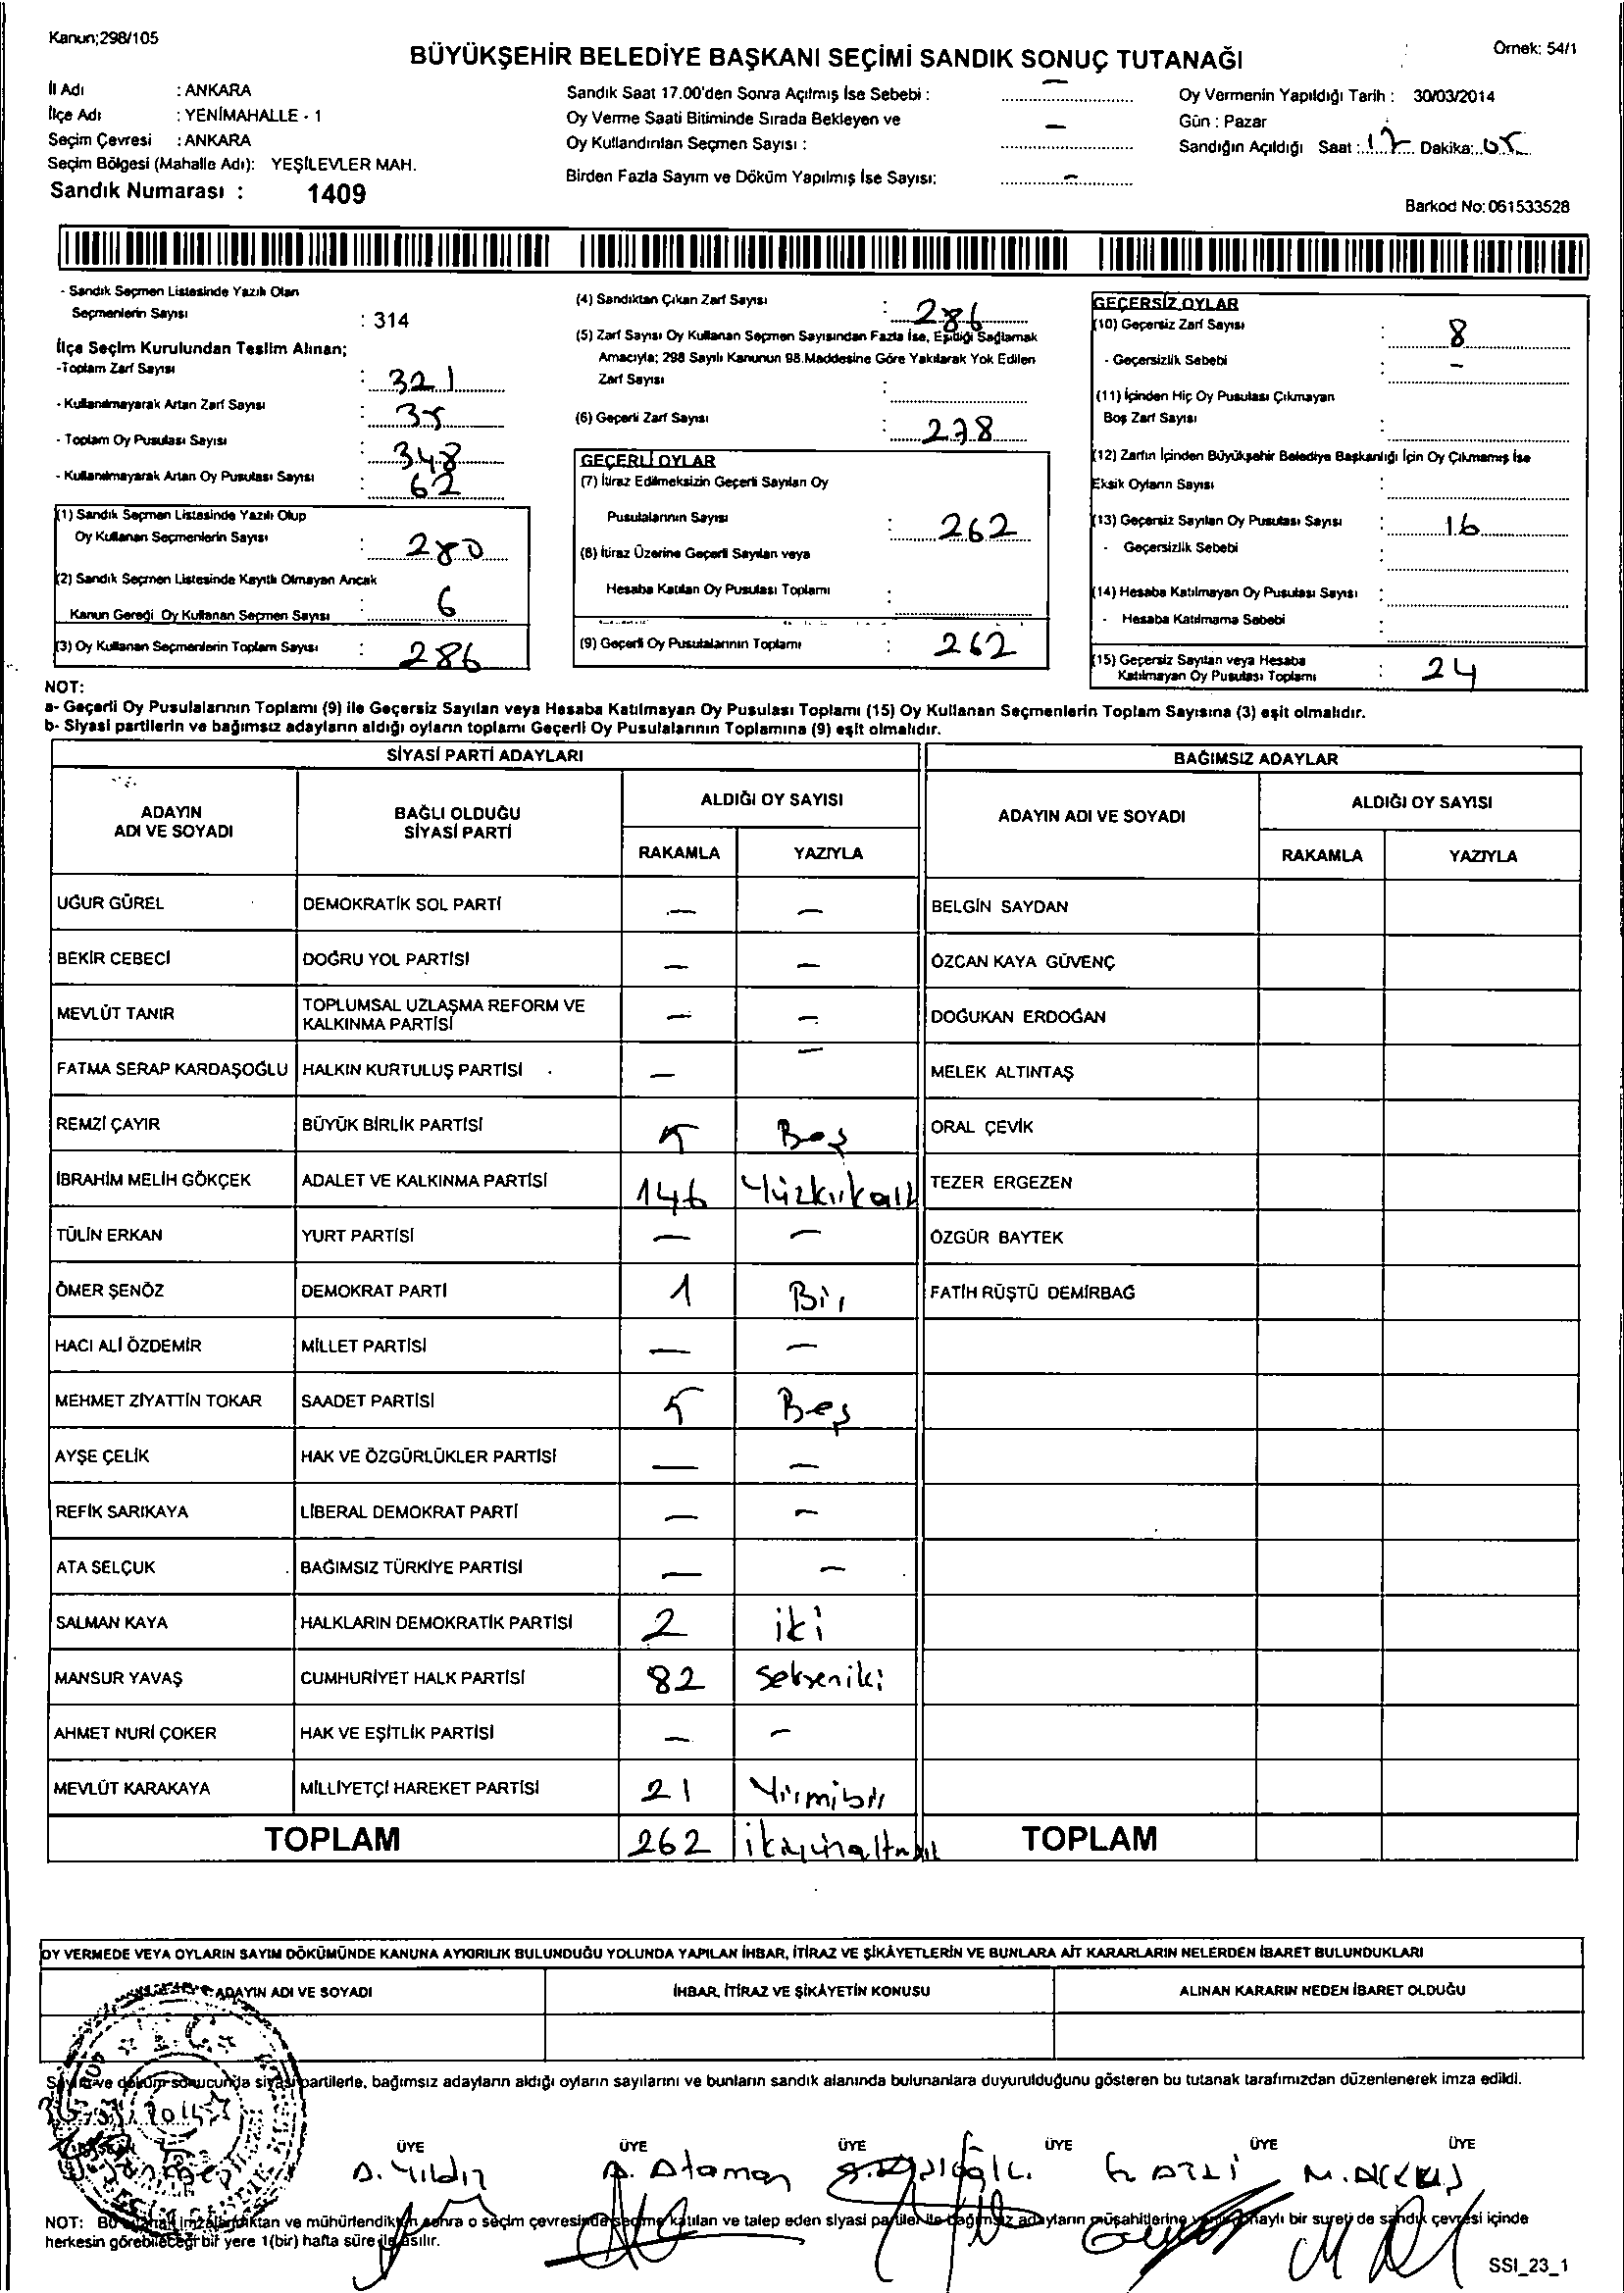 Kanun;298/105
BÜYÜKŞEHİR BELEDİYE BAŞKANI SEÇİMİ SANDIK SONUÇ TUTANAĞI
Örnek: 54/1
İl Adı : ANKARA
İlçe Adı : YENİMAHALLE - 1
Seçim Çevresi : ANKARA
Seçim Bölgesi (Mahalle Adı): YEŞİLEVLER MAH.
Sandık Numarası : 1409
Sandık Saat 17.00'den Sonra Açılmış İse Sebebi : —
Oy Verme Saati Bitiminde Sırada Bekleyen ve
Oy Kullandırılan Seçmen Sayısı : —
Birden Fazla Sayım ve Döküm Yapılmış İse Sayısı: —
Oy Vermenin Yapıldığı Tarih : 30/03/2014
Gün : Pazar
Sandığın Açıldığı Saat : 17 Dakika: 05
Barkod No: 061533528
- Sandık Seçmen Listesinde Yazılı Olan
Seçmenlerin Sayısı : 314
İlçe Seçim Kurulundan Teslim Alınan;
-Toplam Zarf Sayısı : 321
- Kullanılmayarak Artan Zarf Sayısı : 35
- Toplam Oy Pusulası Sayısı : 348
- Kullanılmayarak Artan Oy Pusulası Sayısı : 62
(1) Sandık Seçmen Listesinde Yazılı Olup
Oy Kullanan Seçmenlerin Sayısı : 280
(2) Sandık Seçmen Listesinde Kayıtlı Olmayan Ancak
Kanun Gereği Oy Kullanan Seçmen Sayısı : 6
(3) Oy Kullanan Seçmenlerin Toplam Sayısı : 286
(4) Sandıktan Çıkan Zarf Sayısı : 286
(5) Zarf Sayısı Oy Kullanan Seçmen Sayısından Fazla İse, Eşitliği Sağlamak
Amacıyla; 298 Sayılı Kanunun 98.Maddesine Göre Yakılarak Yok Edilen
Zarf Sayısı :
(6) Geçerli Zarf Sayısı : 278
GEÇERLİ OYLAR
(7) İtiraz Edilmeksizin Geçerli Sayılan Oy
Pusulalarının Sayısı : 262
(8) İtiraz Üzerine Geçerli Sayılan veya
Hesaba Katılan Oy Pusulası Toplamı :
(9) Geçerli Oy Pusulalarının Toplamı : 262
GEÇERSİZ OYLAR
(10) Geçersiz Zarf Sayısı : 8
- Geçersizlik Sebebi : —
(11) İçinden Hiç Oy Pusulası Çıkmayan
Boş Zarf Sayısı :
(12) Zarfın İçinden Büyükşehir Belediye Başkanlığı İçin Oy Çıkmamış İse
Eksik Oyların Sayısı :
(13) Geçersiz Sayılan Oy Pusulası Sayısı : 16
- Geçersizlik Sebebi :
(14) Hesaba Katılmayan Oy Pusulası Sayısı :
- Hesaba Katılmama Sebebi :
(15) Geçersiz Sayılan veya Hesaba
Katılmayan Oy Pusulası Toplamı : 24
NOT:
a- Geçerli Oy Pusulalarının Toplamı (9) ile Geçersiz Sayılan veya Hesaba Katılmayan Oy Pusulası Toplamı (15) Oy Kullanan Seçmenlerin Toplam Sayısına (3) eşit olmalıdır.
b- Siyasi partilerin ve bağımsız adayların aldığı oyların toplamı Geçerli Oy Pusulalarının Toplamına (9) eşit olmalıdır.
SİYASİ PARTİ ADAYLARI
ADAYIN ADI VE SOYADI
BAĞLI OLDUĞU SİYASİ PARTİ
ALDIĞI OY SAYISI
RAKAMLA YAZIYLA
UĞUR GÜREL DEMOKRATİK SOL PARTİ — —
BEKİR CEBECİ DOĞRU YOL PARTİSİ — —
MEVLÜT TANIR TOPLUMSAL UZLAŞMA REFORM VE KALKINMA PARTİSİ — —
FATMA SERAP KARDAŞOĞLU HALKIN KURTULUŞ PARTİSİ — —
REMZİ ÇAYIR BÜYÜK BİRLİK PARTİSİ 5 Beş
İBRAHİM MELİH GÖKÇEK ADALET VE KALKINMA PARTİSİ 146 Yüzkırkaltı
TÜLİN ERKAN YURT PARTİSİ — —
ÖMER ŞENÖZ DEMOKRAT PARTİ 1 Bir
HACI ALİ ÖZDEMİR MİLLET PARTİSİ — —
MEHMET ZİYATTİN TOKAR SAADET PARTİSİ 5 Beş
AYŞE ÇELİK HAK VE ÖZGÜRLÜKLER PARTİSİ — —
REFİK SARIKAYA LİBERAL DEMOKRAT PARTİ — —
ATA SELÇUK BAĞIMSIZ TÜRKİYE PARTİSİ — —
SALMAN KAYA HALKLARIN DEMOKRATİK PARTİSİ 2 iki
MANSUR YAVAŞ CUMHURİYET HALK PARTİSİ 82 Sekseniki
AHMET NURİ ÇOKER HAK VE EŞİTLİK PARTİSİ — —
MEVLÜT KARAKAYA MİLLİYETÇİ HAREKET PARTİSİ 21 Yirmibir
TOPLAM 262
BAĞIMSIZ ADAYLAR
ADAYIN ADI VE SOYADI
ALDIĞI OY SAYISI
RAKAMLA YAZIYLA
BELGİN SAYDAN
ÖZCAN KAYA GÜVENÇ
DOĞUKAN ERDOĞAN
MELEK ALTINTAŞ
ORAL ÇEVİK
TEZER ERGEZEN
ÖZGÜR BAYTEK
FATİH RÜŞTÜ DEMİRBAĞ
TOPLAM
OY VERMEDE VEYA OYLARIN SAYIM DÖKÜMÜNDE KANUNA AYKIRILIK BULUNDUĞU YOLUNDA YAPILAN İHBAR, İTİRAZ VE ŞİKÂYETLERİN VE BUNLARA AİT KARARLARIN NELERDEN İBARET BULUNDUKLARI
ADAYIN ADI VE SOYADI
İHBAR, İTİRAZ VE ŞİKÂYETİN KONUSU
ALINAN KARARIN NEDEN İBARET OLDUĞU
Sayım ve döküm sonucunda siyasi partilerle, bağımsız adayların aldığı oyların sayılarını ve bunların sandık alanında bulunanlara duyurulduğunu gösteren bu tutanak tarafımızdan düzenlenerek imza edildi.
ÜYE ÜYE ÜYE ÜYE ÜYE ÜYE
A. Ataman
NOT: Bu tutanak imzalandıktan ve mühürlendikten sonra o seçim çevresinde seçime katılan ve talep eden siyasi partiler ile bağımsız adayların müşahitlerine onaylı bir sureti de sandık çevresi içinde
herkesin görebileceği bir yere 1(bir) hafta süre ile asılır.
SSI_23_1